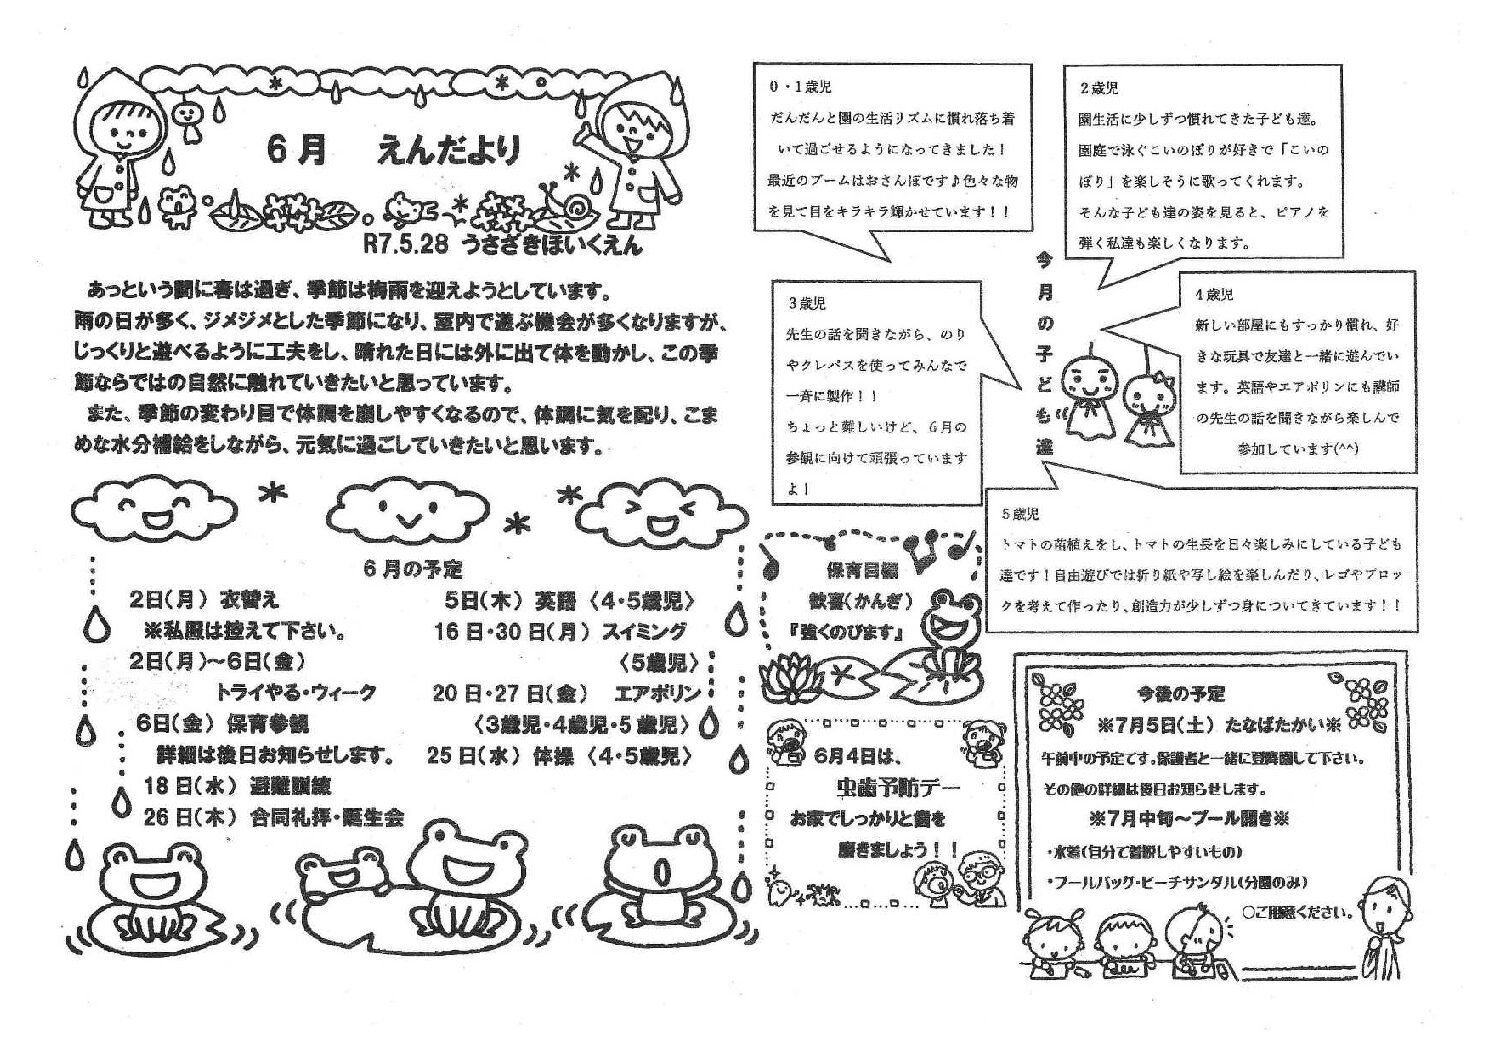 6月　えんだより
R7.5.28 うさざきほいくえん
あっという間に春は過ぎ、季節は梅雨を迎えようとしています。
雨の日が多く、ジメジメとした季節になり、室内で遊ぶ機会が多くなりますが、
じっくりと遊べるように工夫をし、晴れた日には外に出て体を動かし、この季
節ならではの自然に触れていきたいと思っています。
また、季節の変わり目で体調を崩しやすくなるので、体調に気を配り、こま
めな水分補給をしながら、元気に過ごしていきたいと思います。
6月の予定
2日(月) 衣替え
※私服は控えて下さい。
2日(月)～6日(金)
トライやる・ウィーク
6日(金) 保育参観
詳細は後日お知らせします。
18日(水) 避難訓練
26日(木) 合同礼拝・誕生会
5日(木) 英語〈4・5歳児〉
16日・30日(月) スイミング
〈5歳児〉
20日・27日(金) エアポリン
〈3歳児・4歳児・5歳児〉
25日(水) 体操〈4・5歳児〉
今月の子ども達
0・1歳児
だんだんと園の生活リズムに慣れ落ち着
いて過ごせるようになってきました！
最近のブームはおさんぽです♪色々な物
を見て目をキラキラ輝かせています！！
2歳児
園生活に少しずつ慣れてきた子ども達。
園庭で泳ぐこいのぼりが好きで「こいの
ぼり」を楽しそうに歌ってくれます。
そんな子ども達の姿を見ると、ピアノを
弾く私達も楽しくなります。
3歳児
先生の話を聞きながら、のり
やクレパスを使ってみんなで
一斉に製作！！
ちょっと難しいけど、6月の
参観に向けて頑張っています
よ！
4歳児
新しい部屋にもすっかり慣れ、好
きな玩具で友達と一緒に遊んでい
ます。英語やエアポリンにも講師
の先生の話を聞きながら楽しんで
参加しています(^^)
5歳児
トマトの苗植えをし、トマトの生長を日々楽しみにしている子ども
達です！自由遊びでは折り紙や写し絵を楽しんだり、レゴやブロッ
クを考えて作ったり、創造力が少しずつ身についてきています！！
保育目標
歓喜(かんぎ)
『強くのびます』
6月4日は、
虫歯予防デー
お家でしっかりと歯を
磨きましょう！！
今後の予定
※7月5日(土) たなばたかい※
午前中の予定です。保護者と一緒に登降園して下さい。
その他の詳細は後日お知らせします。
※7月中旬～プール開き※
・水着(自分で着脱しやすいもの)
・プールバッグ・ビーチサンダル(分園のみ)
○ご用意ください。